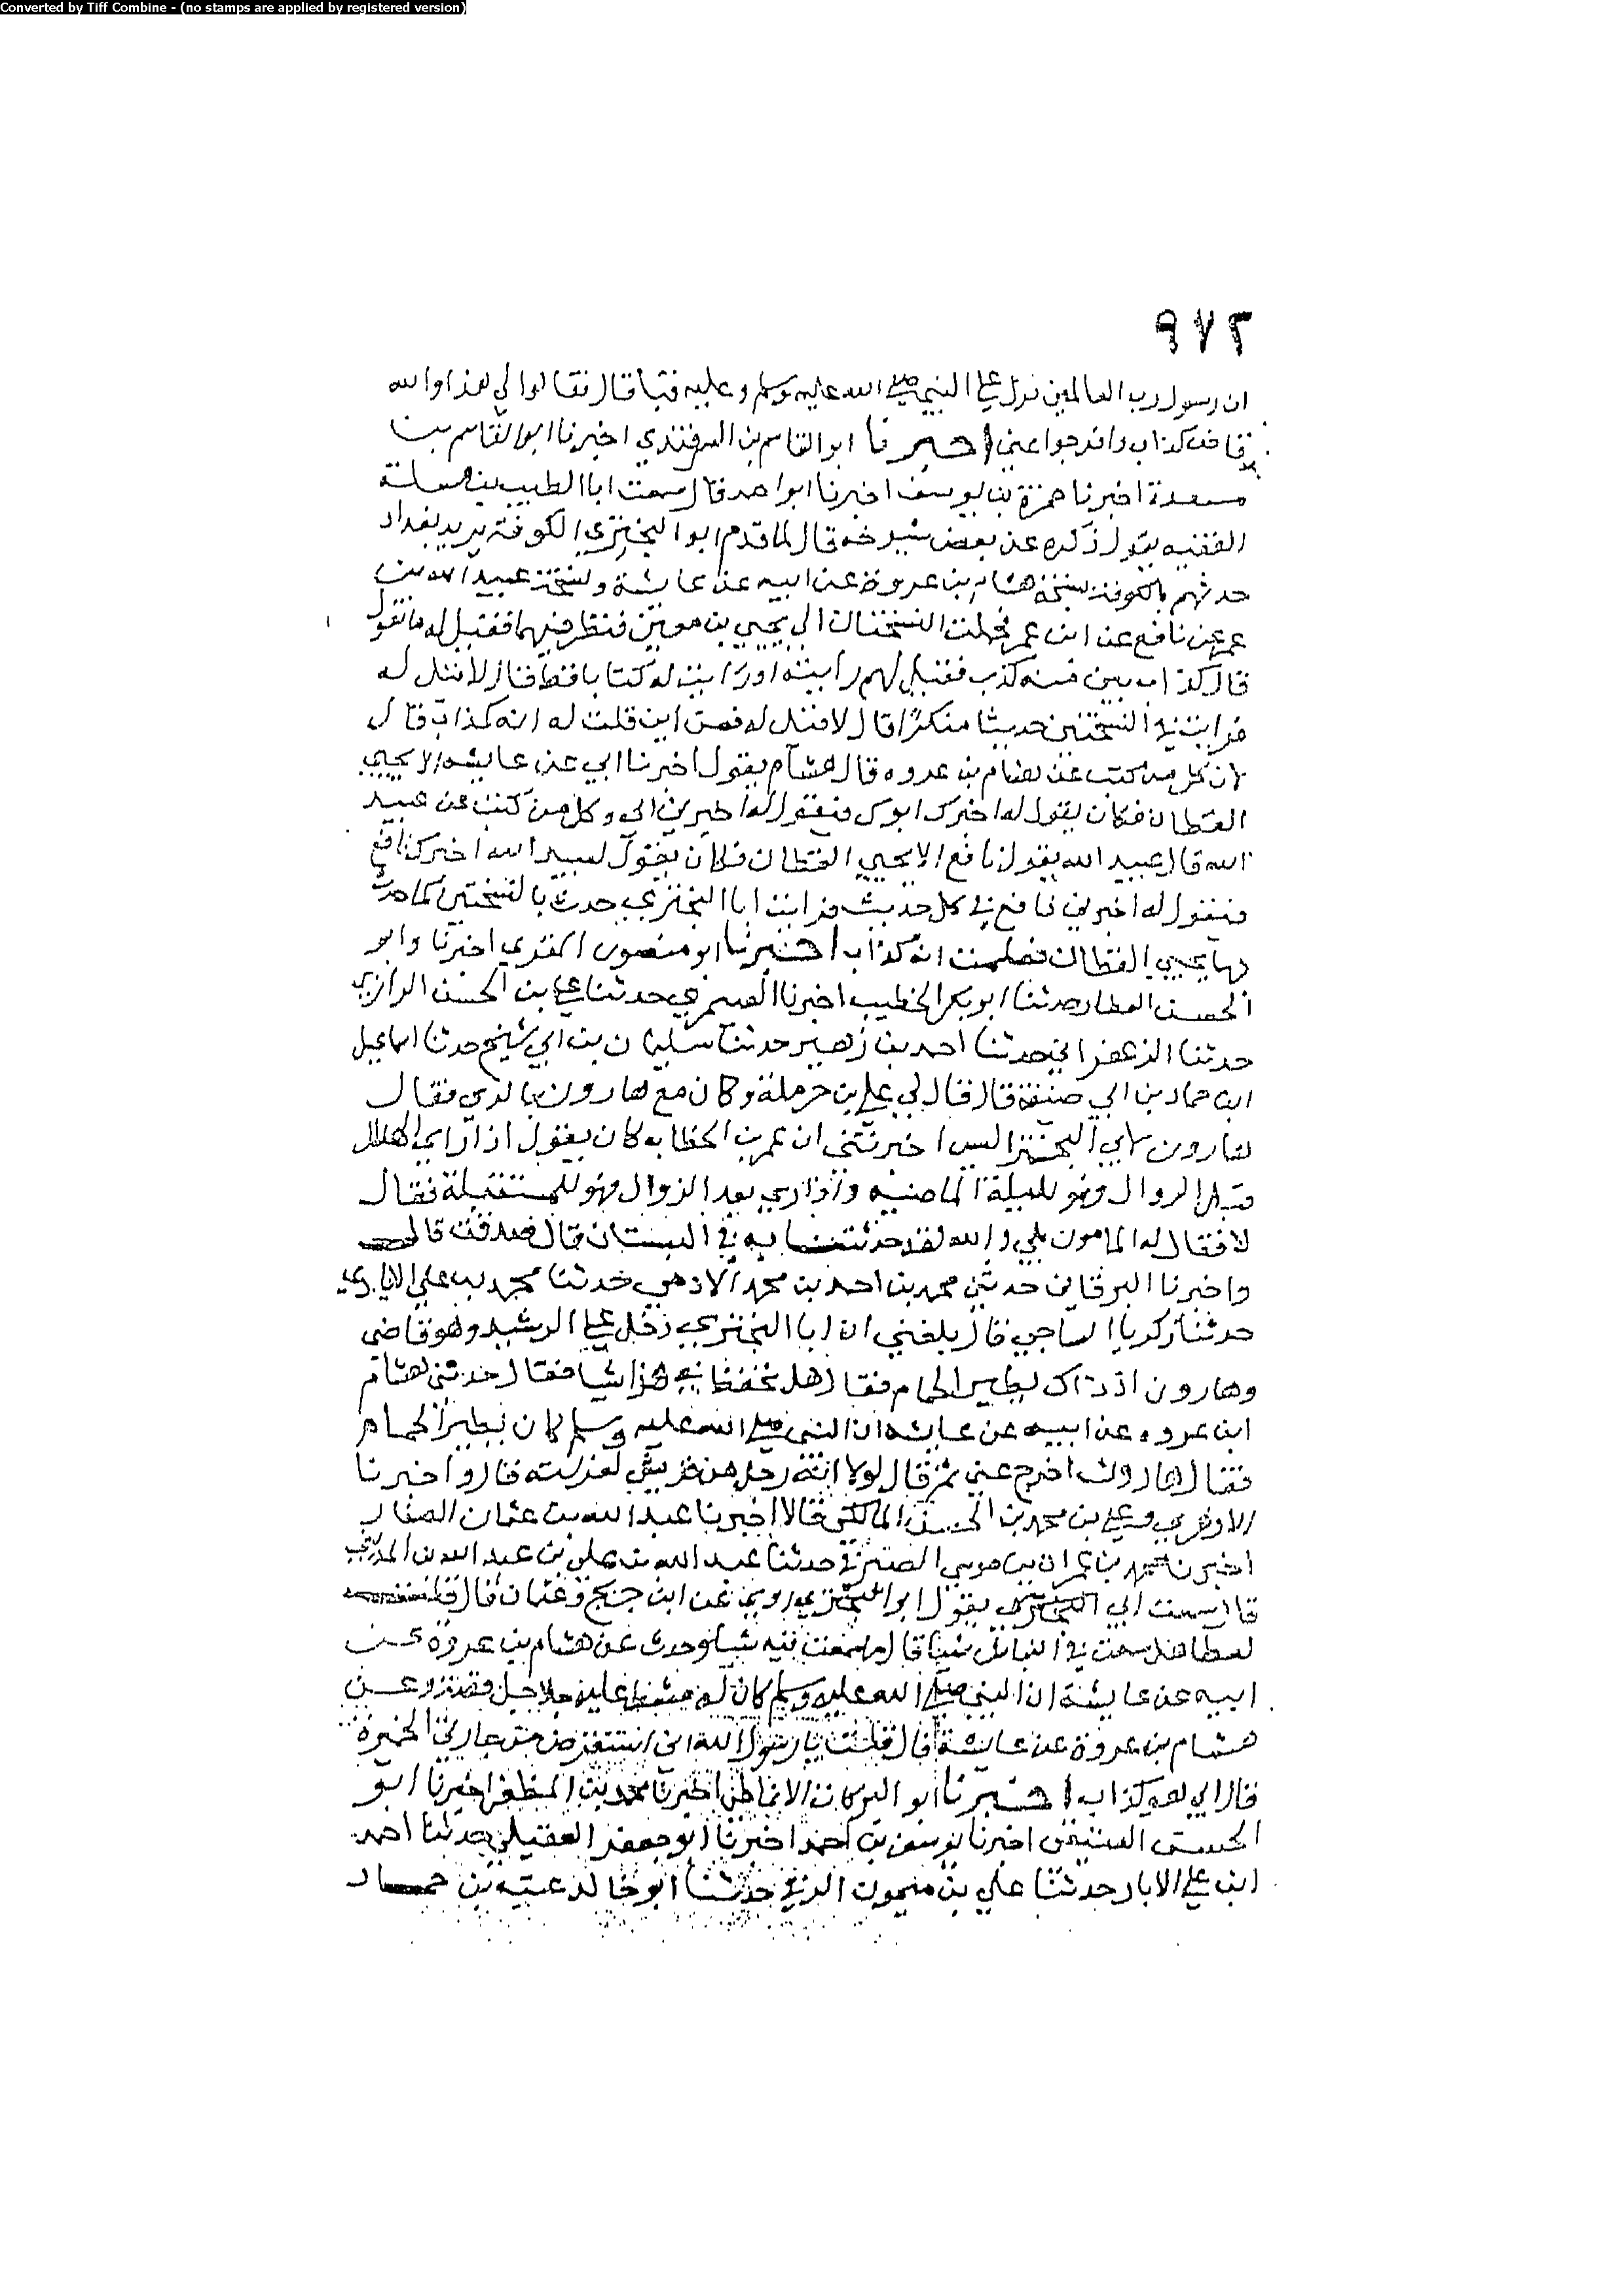 Converted by Tiff Combine - (no stamps are applied by registered version)
٩٧٢
ان رسول رب العالمين نزل على النبي صلى الله عليه وسلم وعليه قبا قال فقالوا لي هذا والله
قاض كذاب وافرجوا عني اخبرنا ابو القاسم بن السمرقندي اخبرنا ابو القاسم بن
مسعدة اخبرنا حمزة بن يوسف اخبرنا ابو احمد قال سمعت ابا الطيب بن سلمة
الفقيه يقول ذكره عن بعض شيوخه قال لما قدم ابو البختري الكوفة يريد بغداد
حدثهم بالكوفة بنسخة هشام بن عروة عن ابيه عن عايشة ونسخة عبيد الله بن
عمر عن نافع عن ابن عمر فحملت النسختان الى يحيى بن معين فنظر فيهما فقيل له ما تقول
قال كذاب بين فيه كذب فقيل لهم رايته او رايت له كتابا قط قال لا فقيل له
فرايت في النسختين حديثا منكرا قال لا فقيل له فمن اين قلت له انه كذاب قال
لان كل من كتب عن هشام بن عروه قال هشام يقول اخبرنا ابي عن عايشه الا يحيى
القطان فكان يقول له اخبرك ابوك فيقول له اخبرني ابي وكل من كتب عن عبيد
الله قال عبيد الله يقول نافع الا يحيى القطان فكان يقول لعبيد الله اخبرك نافع
فيقول له اخبرني نافع في كل حديث فرايت ابا البختري حدث بالنسختين كما حدث
بها يحيى القطان فعلمت انه كذاب اخبرنا ابو منصور المقري اخبرنا وابو
الحسن العطار حدثنا ابو بكر الخطيب اخبرنا الصيمري حدثنا علي بن الحسن الرازي
حدثنا الزعفراني حدثنا احمد بن زهير حدثنا سليمان بن ابي شيخ حدثنا اسماعيل
ابن حماد بن ابي حنيفة قال قال لي علي بن حرملة وكان مع هارون بالري فقال
هارون لابي البختري اليس اخبرتني ان عمر بن الخطاب كان يقول اذا راي الهلال
قبل الزوال فهو لليلة الماضيه واذا ري بعد الزوال فهو للمستقبلة فقال
لا فقال له المامون بلى والله لقد حدثتنا به في البستان قال صدقت قال
واخبرنا البرقاني حدثني محمد بن احمد بن محمد الادمي حدثنا محمد بن علي الايادي
حدثنا زكريا الساجي قال بلغني ان ابا البختري دخل على الرشيد وهو قاضي
وهارون اذ ذاك يطير الحمام فقال هل تحفظ في هذا شيا فقال حدثني هشام
ابن عروه عن ابيه عن عايشه ان النبي صلى الله عليه وسلم كان يطير الحمام
فقال هارون اخرج عني ثم قال لولا انه رجل من قريش لعزلته قال واخبرنا
الازهري وعلي بن محمد بن الحسن المالكي قالا اخبرنا عبد الله بن عثمان الصفار
اخبرنا محمد بن عمران بن موسى الصيرفي حدثنا عبد الله بن علي بن عبد الله بن المديني
قال سمعت ابي يقول ابو البختري روى عن ابن جريج وعثمان قال
لعطا هل سمعت في شيا قال ما سمعت فيه شيا وحدث عن هشام بن عروة عن
ابيه عن عايشة ان النبي صلى الله عليه وسلم كان له عليه وعن
هشام بن عروة عن عايشة قال قلت يا رسول الله اني استقرض من جارتي الخميرة
قال ابي هو كذاب اخبرنا ابو البركات الانماطي اخبرنا محمد بن المظفر اخبرنا ابو
الحسن العتيقي اخبرنا يوسف بن احمد اخبرنا ابو جعفر العقيلي حدثنا احمد
ابن علي الابار حدثنا علي بن ميمون الرقي حدثنا ابو خالد عتبة بن حماد